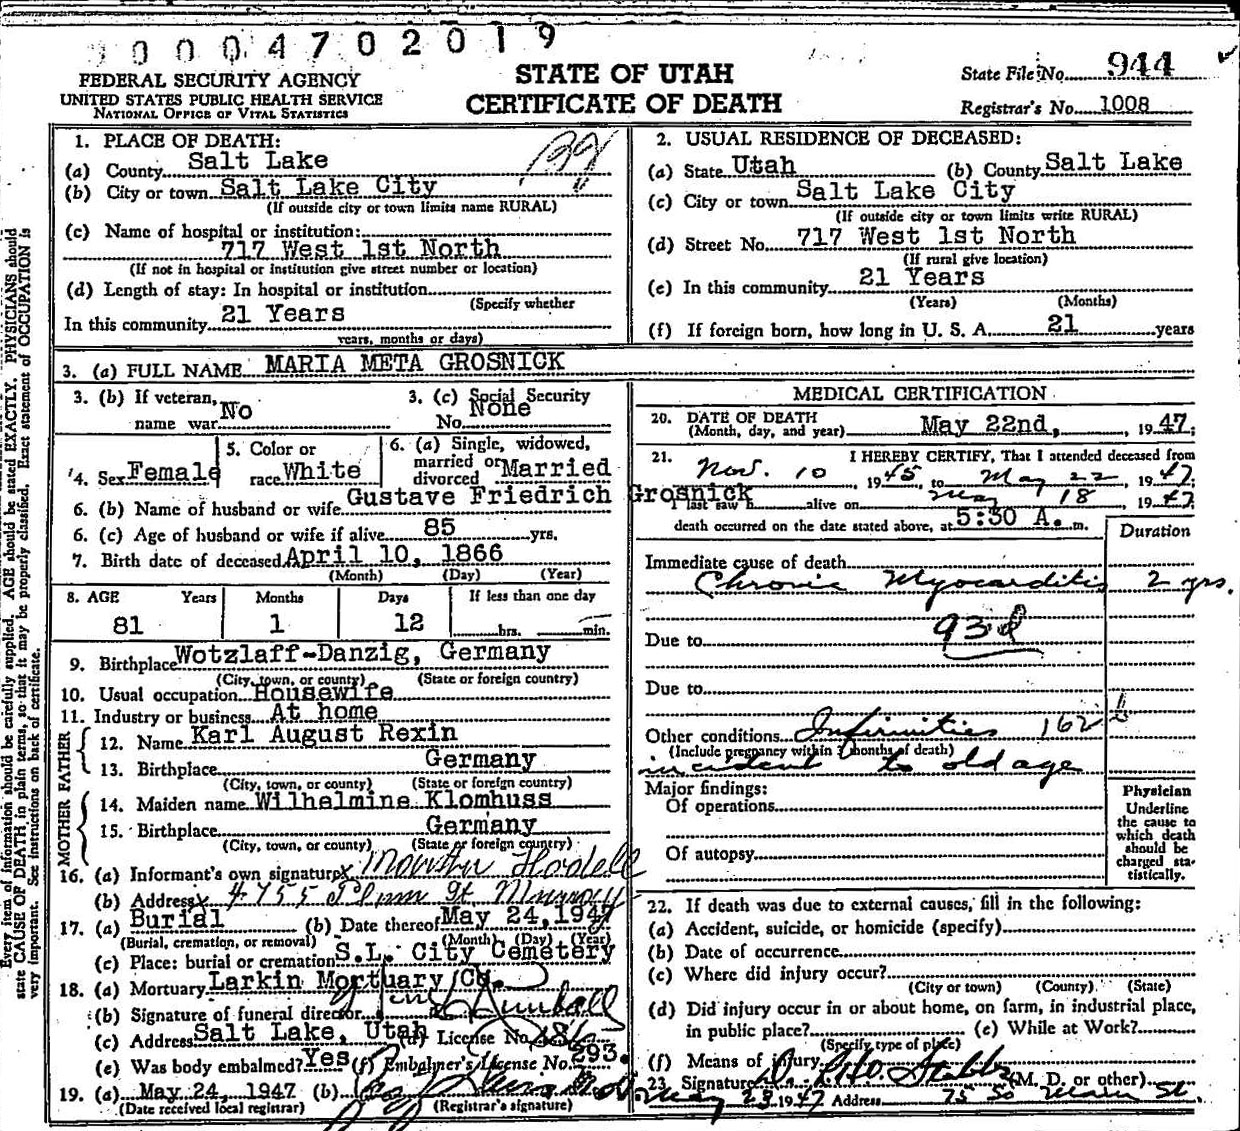 0004702019
FEDERAL SECURITY AGENCY
UNITED STATES PUBLIC HEALTH SERVICE
NATIONAL OFFICE OF VITAL STATISTICS
STATE OF UTAH
CERTIFICATE OF DEATH
State File No. 944
Registrar's No. 1008
Every item of information should be carefully supplied. AGE should be stated EXACTLY. PHYSICIANS should
state CAUSE OF DEATH in plain terms, so that it may be properly classified. Exact statement of OCCUPATION is
very important. See instructions on back of certificate.
1. PLACE OF DEATH:
(a) County Salt Lake
(b) City or town Salt Lake City
(If outside city or town limits name RURAL)
(c) Name of hospital or institution:
717 West 1st North
(If not in hospital or institution give street number or location)
(d) Length of stay: In hospital or institution
(Specify whether
In this community 21 Years
years, months or days)
2. USUAL RESIDENCE OF DECEASED:
(a) State Utah (b) County Salt Lake
(c) City or town Salt Lake City
(If outside city or town limits write RURAL)
(d) Street No. 717 West 1st North
(If rural give location)
(e) In this community 21 Years
(Years) (Months)
(f) If foreign born, how long in U. S. A. 21 years
3. (a) FULL NAME MARIA META GROSNICK
3. (b) If veteran, name war No
3. (c) Social Security No. None
4. Sex Female
5. Color or race White
6. (a) Single, widowed, married or divorced Married
6. (b) Name of husband or wife Gustave Friedrich Grosnick
6. (c) Age of husband or wife if alive 85 yrs.
7. Birth date of deceased April 10, 1866
(Month) (Day) (Year)
8. AGE Years Months Days If less than one day
81 1 12 hrs. min.
9. Birthplace Wotzlaff-Danzig, Germany
(City, town, or county) (State or foreign country)
10. Usual occupation Housewife
11. Industry or business At home
FATHER
12. Name Karl August Rexin
13. Birthplace Germany
(City, town, or county) (State or foreign country)
MOTHER
14. Maiden name Wilhelmine Klomhuss
15. Birthplace Germany
(City, town, or county) (State or foreign country)
16. (a) Informant's own signature x
(b) Address x 4755 Plum St Murray
17. (a) Burial (b) Date thereof May 24, 1947
(Burial, cremation, or removal) (Month) (Day) (Year)
(c) Place: burial or cremation S.L. City Cemetery
18. (a) Mortuary Larkin Mortuary Co.
(b) Signature of funeral director
(c) Address Salt Lake, Utah (d) License No.
(e) Was body embalmed? Yes (f) Embalmer's License No. 293.
19. (a) May 24, 1947 (b)
(Date received local registrar) (Registrar's signature)
MEDICAL CERTIFICATION
20. DATE OF DEATH
(Month, day, and year) May 22nd, 1947;
21. I HEREBY CERTIFY, That I attended deceased from
Nov. 10, 1945, to May 22, 1947;
I last saw h alive on May 18 1947;
death occurred on the date stated above, at 5:30 A. m.
Duration
Immediate cause of death
Chronic Myocarditis 2 yrs.
93d
Due to
Due to
Other conditions Infirmities 162 b
(Include pregnancy within 3 months of death)
incident to old age
Major findings:
Of operations
Of autopsy
Physician
Underline
the cause to
which death
should be
charged sta-
tistically.
22. If death was due to external causes, fill in the following:
(a) Accident, suicide, or homicide (specify)
(b) Date of occurrence
(c) Where did injury occur?
(City or town) (County) (State)
(d) Did injury occur in or about home, on farm, in industrial place,
in public place? (e) While at Work?
(Specify type of place)
(f) Means of injury
23. Signature (M. D. or other)
May 23 1947 Address 75 So Main St.